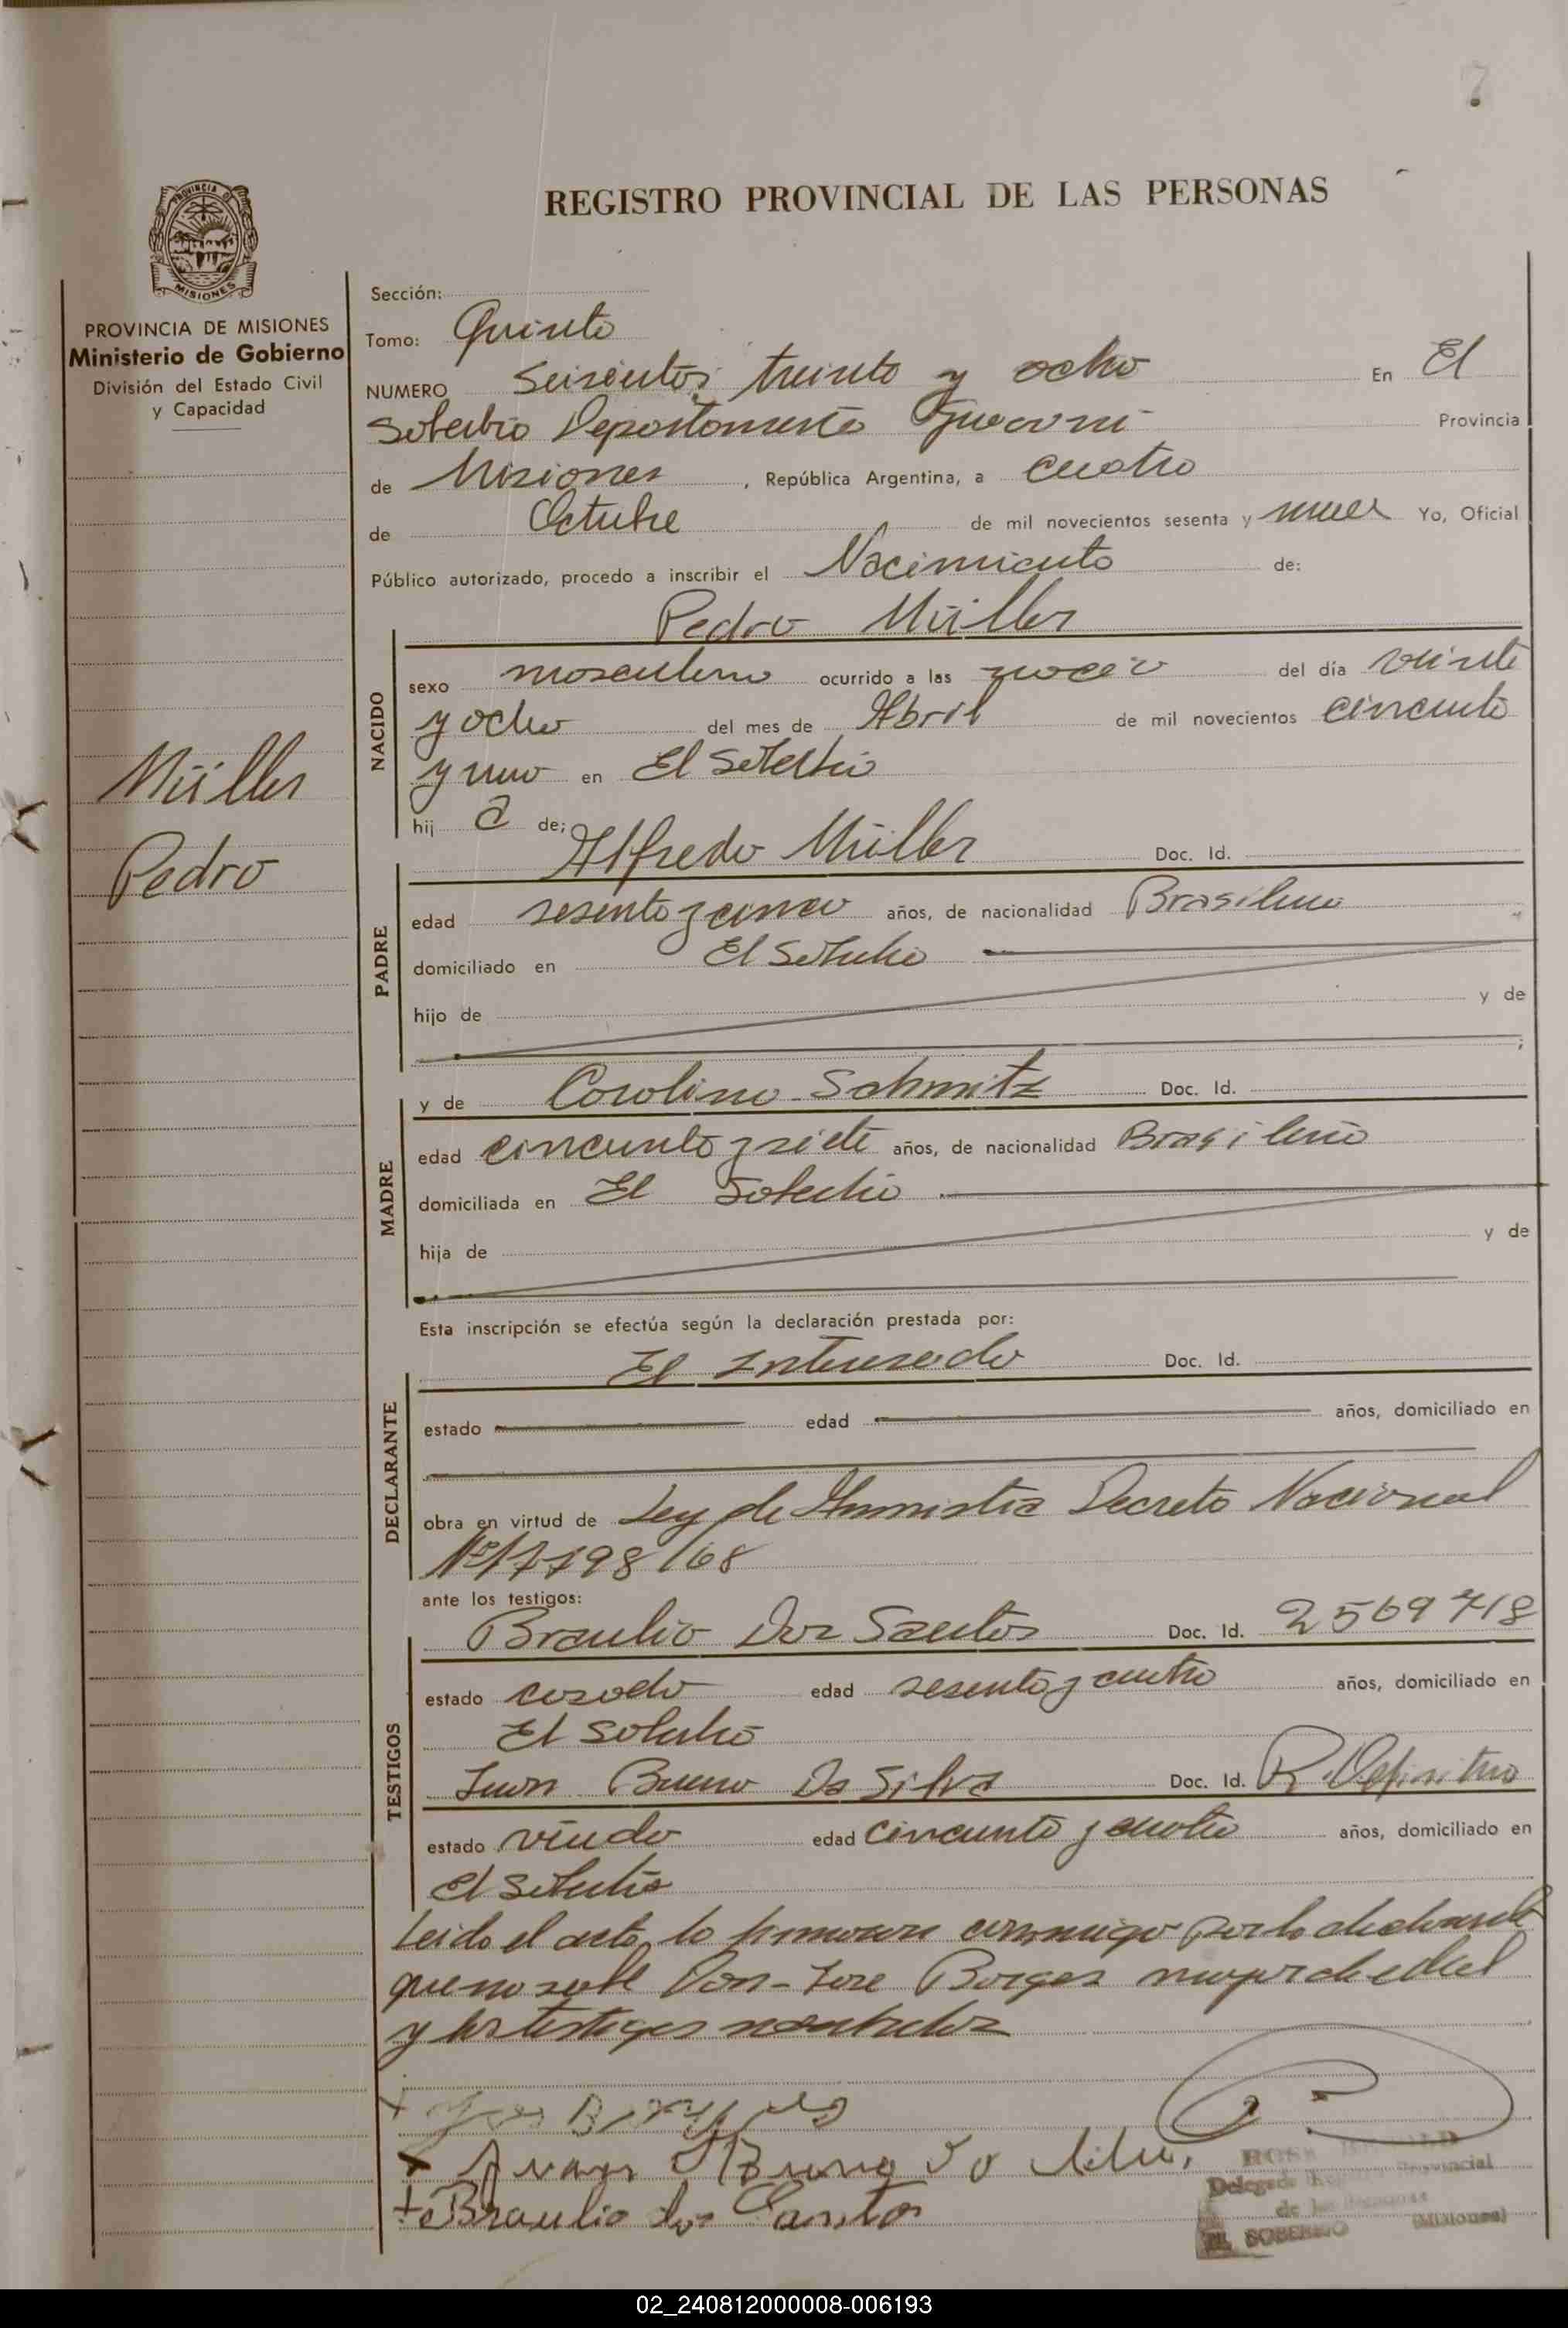 7
REGISTRO PROVINCIAL DE LAS PERSONAS
PROVINCIA DE
MISIONES
PROVINCIA DE MISIONES
Ministerio de Gobierno
División del Estado Civil
y Capacidad
Müller
Pedro
Sección:
Tomo: Quinto
NUMERO Seiscientos treinta y ocho En El
Soberbio Departamento Guarani Provincia
de Misiones, República Argentina, a cuatro
de Octubre de mil novecientos sesenta y nueve Yo, Oficial
Público autorizado, procedo a inscribir el Nacimiento de:
Pedro Müller
NACIDO
sexo masculino ocurrido a las del día veinte
y ocho del mes de Abril de mil novecientos cincuenta
y uno en El Soberbio
hij o de;
Alfredo Müller Doc. Id.
PADRE
edad sesenta y cinco años, de nacionalidad Brasileno
domiciliado en El Soberbio
hijo de y de
;
y de Carolina Schmitz Doc. Id.
MADRE
edad cincuenta y siete años, de nacionalidad Brasileña
domiciliada en El Soberbio
hija de y de
Esta inscripción se efectúa según la declaración prestada por:
El Interesado Doc. Id.
DECLARANTE
estado edad años, domiciliado en
obra en virtud de Ley de Amnistia Decreto Nacional
Nº 17798/68
ante los testigos:
Braulio Dos Santos Doc. Id. 2569718
TESTIGOS
estado casado edad sesenta y cuatro años, domiciliado en
El Soberbio
Juan Bueno Da Silva Doc. Id. R. Definitivo
estado viudo edad cincuenta y cuatro años, domiciliado en
El Soberbio
Leido el acta, lo firmaron conmigo por la declarante
que no sabe Don - Jose Borges mayor de edad
y los testigos nombrados
Braulio dos Santos
Delegado Provincial
de las Personas
EL SOBERBIO (Misiones)
02_240812000008-006193